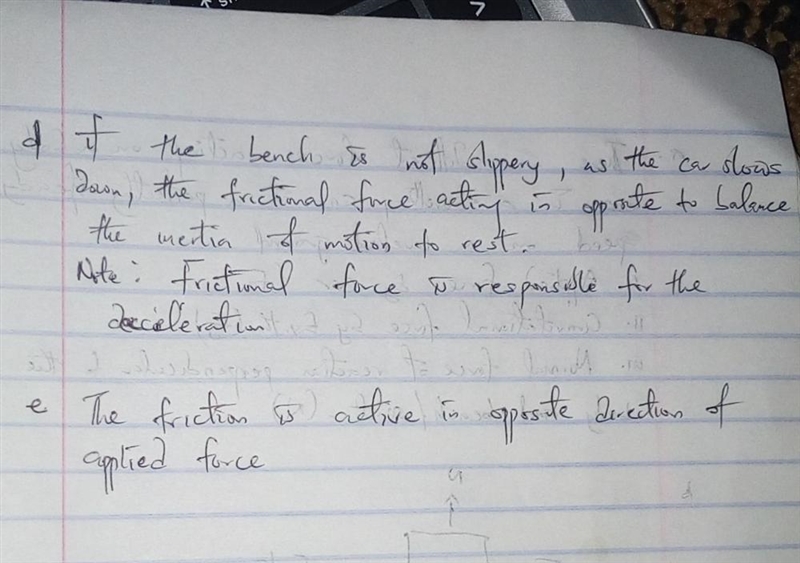 d If the bench is not slippery, as the car slows
down, the frictional force acting in opposite to balance
the inertia of motion to rest.
Note: frictional force is responsible for the
decceleration
e The friction is active in opposite direction of
applied force